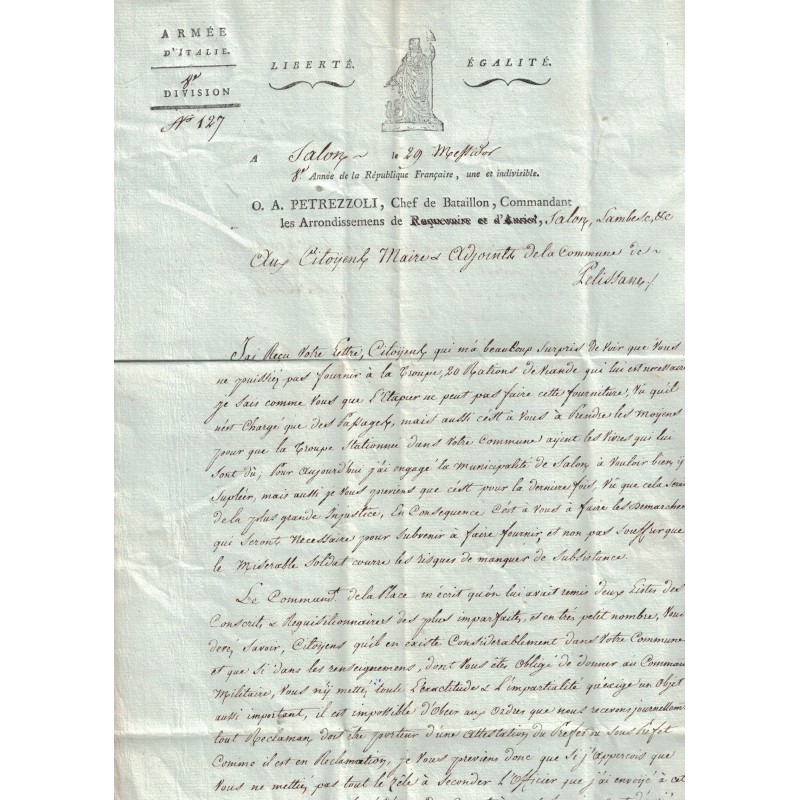 ARMÉE
D'ITALIE.
8e
DIVISION
No 127
LIBERTÉ. ÉGALITÉ.
A Salon le 29 Messidor
8e Année de la République Française, une et indivisible.
O. A. PETREZZOLI, Chef de Bataillon, Commandant
les Arrondissemens de Roquevaire et d'Auriol, Salon, Lambesc, &c
Aux Citoyens Maire & Adjoints de la Commune de
Pelissane
J'ai Reçu Votre Lettre, Citoyens, qui m'a beaucoup surpris de voir que Vous
ne puissiez pas fournir à la Troupe, 20 Rations de Viande qui lui est necessaire
je sais comme Vous que L'Etapier ne peut pas faire cette fourniture, Vû qu'il
n'est Chargé que des Passages, mais aussi c'est à Vous à Prendre les moyens
pour que la Troupe Stationnée dans Votre Commune ayent les Vivres qui lui
sont dû; Pour aujourd'hui j'ai engagé la Municipalité de Salon à Vouloir bien y
Supleer, mais aussi je Vous previens que c'est pour la derniere fois, Vû que cela Serait
de la plus grande Injustice, En Consequence C'est à Vous à faire les Demarches
qui seront Necessaire pour Subvenir à faire fournir, et non pas Souffrir que
le Miserable Soldat courre les risques de manquer de Subsistance.
Le Command.t de la Place m'écrit qu'on lui avait remis deux Listes des
Conscrits & Requisitionnaires des plus imparfaits, et en très petit nombre, Vous
devez Savoir, Citoyens qu'il en existe Considerablement dans Votre Commune
et que si dans les renseignemens, dont Vous êtes Obligé de donner au Comman
Militaire, Vous n'y mettez toute L'exactitude & L'impartialité qu'exige un Objet
aussi important, il est impossible d'Obeir aux Ordres que nous recevons journellement
tout Reclaman doit être porteur d'une Attestation du Prefet ou Sous Prefet
Comme il est en Reclamation, je Vous previens donc que Si j'apperçois que
Vous ne mettiez pas tout le Zêle à Seconder L'Officier que j'ai envoyé à cet